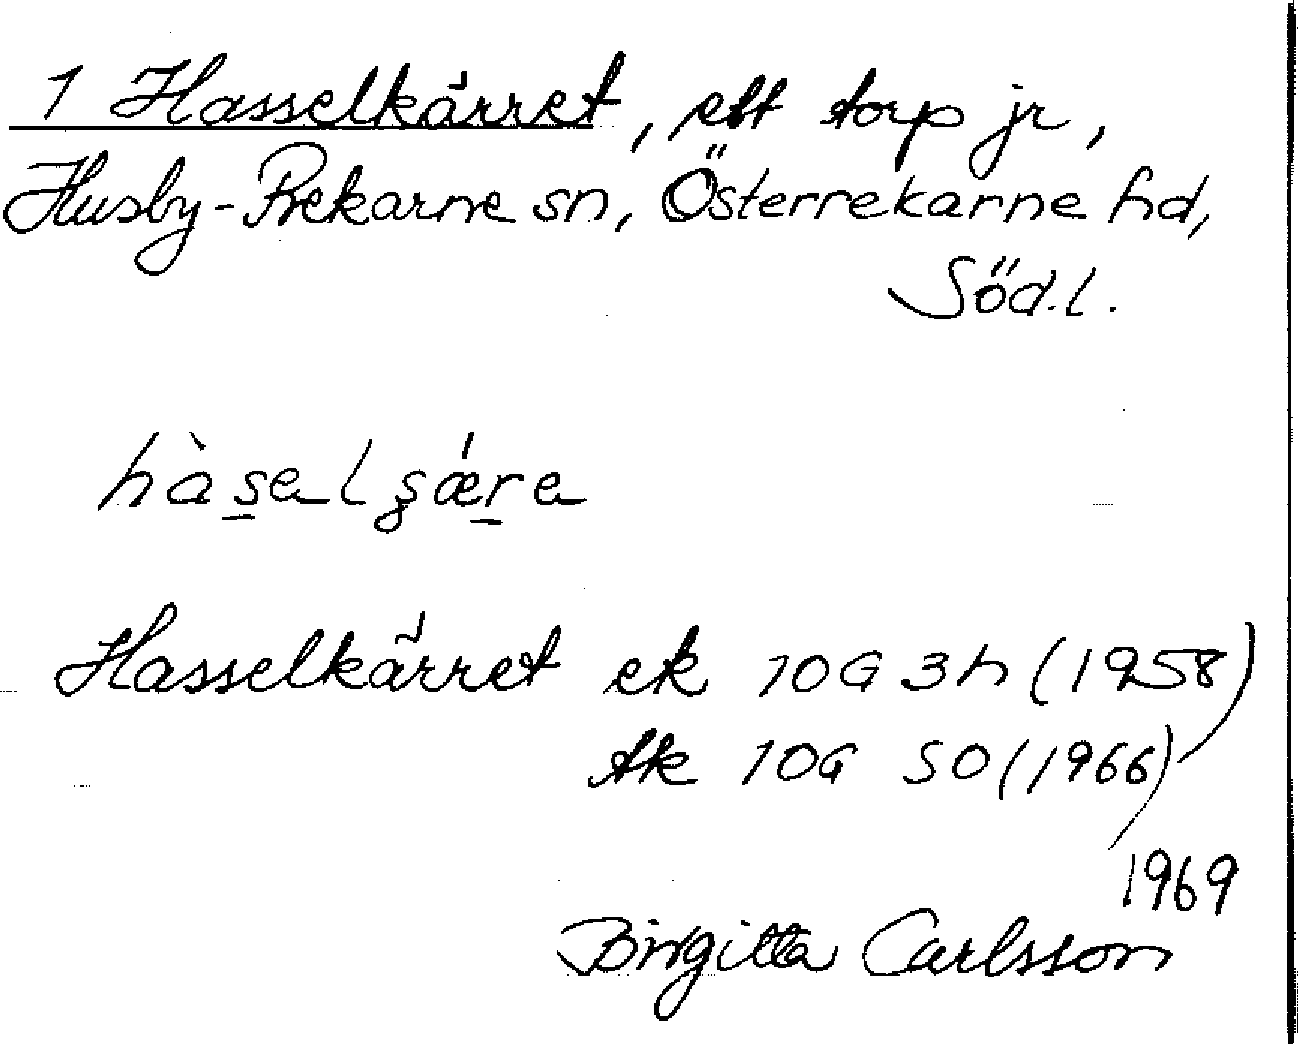 1 Hasselkärret, ett torp jr,
Husby-Rekarne sn, Österrekarne hd,
Söd.l.
Hasselkärret ek 10G 3h (1958)
tk 10G SO (1966)
1969
Birgitta Carlsson